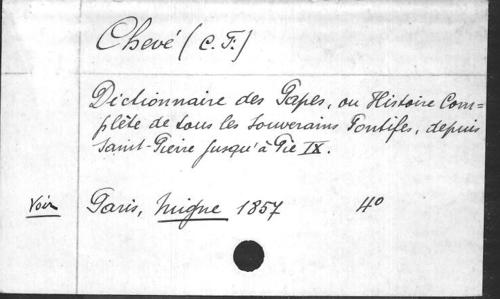 Chevé (C. F.)
Dictionnaire des Papes, ou Histoire Com=
plète de tous les Souverains Pontifes, depuis
Saint-Pierre jusqu'à Pie IX.
Voir Paris, Migne 1857 4°